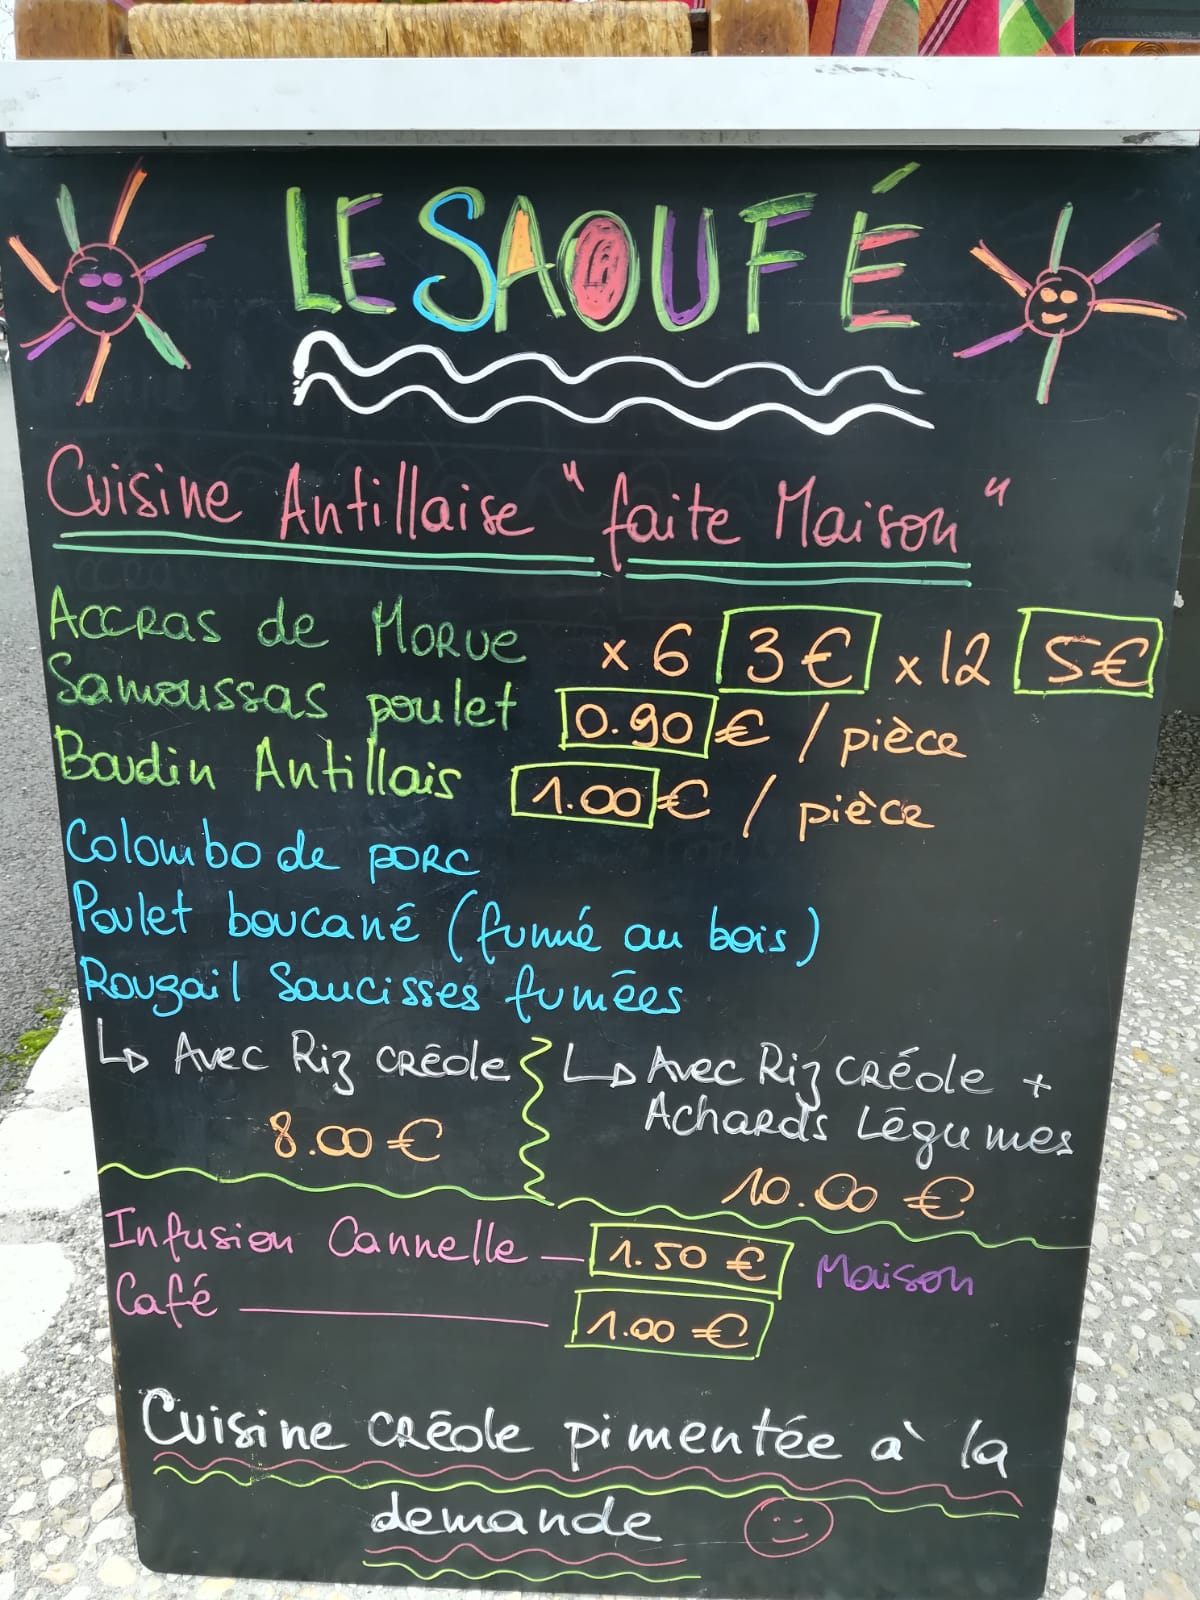 LE SAOUFÉ
Cuisine Antillaise "faite Maison"
Accras de Morue x 6 3€ x 12 5€
Samoussas poulet 0.90 € / pièce
Boudin Antillais 1.00 € / pièce
Colombo de porc
Poulet boucané (fumé au bois)
Rougail Saucisses fumées
↳ Avec Riz créole
8.00 €
↳ Avec Riz créole +
Achards Légumes
10.00 €
Infusion Cannelle — 1.50 € Maison
Café — 1.00 €
Cuisine créole pimentée à la
demande